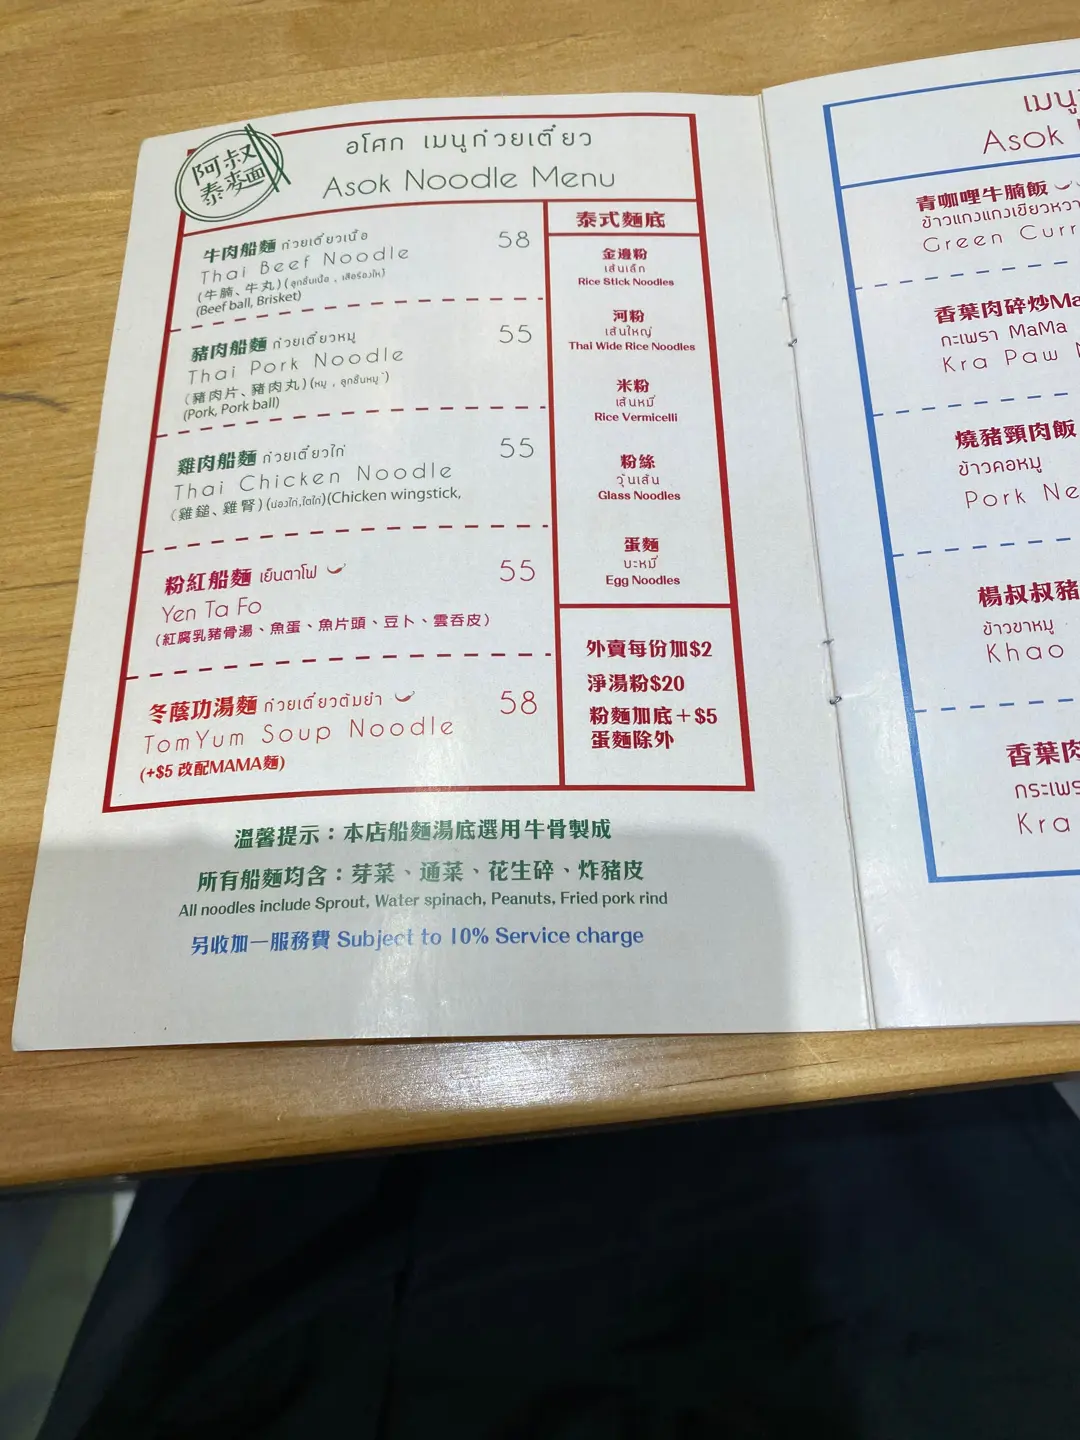 阿叔
泰麥面
อโศก เมนูก๋วยเตี๋ยว
Asok Noodle Menu
牛肉船麵 ก๋วยเตี๋ยวเนื้อ 58
Thai Beef Noodle
(牛腩、牛丸) (ลูกชิ้นเนื้อ , เสือร้องไห้)
(Beef ball, Brisket)
豬肉船麵 ก๋วยเตี๋ยวหมู 55
Thai Pork Noodle
(豬肉片、豬肉丸) (หมู , ลูกชิ้นหมู)
(Pork, Pork ball)
雞肉船麵 ก๋วยเตี๋ยวไก่ 55
Thai Chicken Noodle
(雞鎚、雞腎) (น่องไก่,ไตไก่)(Chicken wingstick,
粉紅船麵 เย็นตาโฟ 55
Yen Ta Fo
(紅腐乳豬骨湯、魚蛋、魚片頭、豆卜、雲吞皮)
冬蔭功湯麵 ก๋วยเตี๋ยวต้มยำ 58
TomYum Soup Noodle
(+$5 改配MAMA麵)
泰式麵底
金邊粉
เส้นเล็ก
Rice Stick Noodles
河粉
เส้นใหญ่
Thai Wide Rice Noodles
米粉
เส้นหมี่
Rice Vermicelli
粉絲
วุ้นเส้น
Glass Noodles
蛋麵
บะหมี่
Egg Noodles
外賣每份加$2
淨湯粉$20
粉麵加底+$5
蛋麵除外
溫馨提示：本店船麵湯底選用牛骨製成
所有船麵均含：芽菜、通菜、花生碎、炸豬皮
All noodles include Sprout, Water spinach, Peanuts, Fried pork rind
另收加一服務費 Subject to 10% Service charge
เมนู
Asok
青咖哩牛腩飯
ข้าวแกงแกงเขียวหวา
Green Curr
香葉肉碎炒Ma
กะเพรา MaMa
Kra Paw
燒豬頸肉飯
ข้าวคอหมู
Pork Ne
楊叔叔豬
ข้าวขาหมู
Khao
香葉肉
กระเพร
Kra